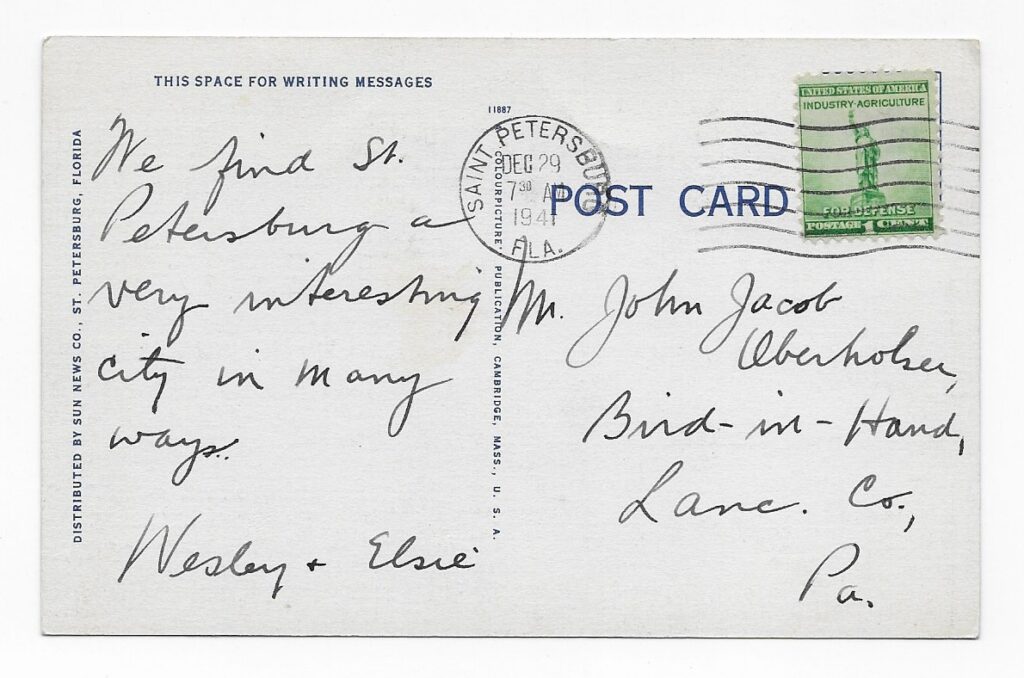 THIS SPACE FOR WRITING MESSAGES
We find St.
Petersburg a
very interesting
city in many
ways.
Wesley + Elsie
DISTRIBUTED BY SUN NEWS CO., ST. PETERSBURG, FLORIDA
11887
COLOURPICTURE PUBLICATION, CAMBRIDGE, MASS., U. S. A.
SAINT PETERSBURG
DEC 29
7 30 AM
1941
FLA.
POST CARD
UNITED STATES OF AMERICA
INDUSTRY-AGRICULTURE
FOR DEFENSE
POSTAGE 1 CENT
Mr. John Jacob
Oberholser,
Bird-in-Hand,
Lanc. Co.,
Pa.